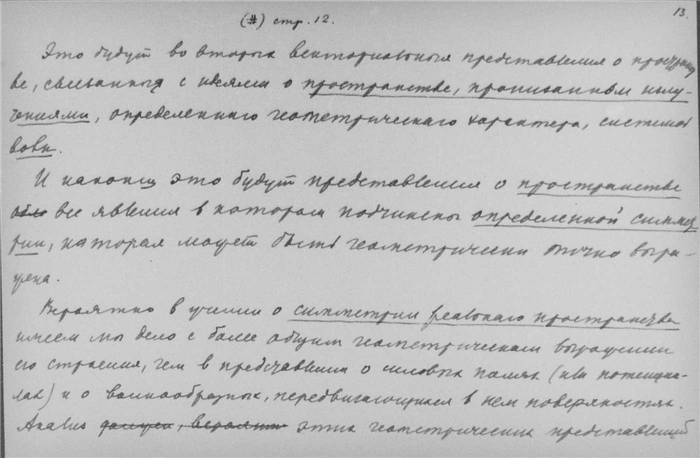 (#) стр. 12.
13.
Это будут во вторых векториальныя представления о простран
ве, связанныя с идеями о пространстве, пронизанным излу-
чениями, определеннаго геометрическаго характера, системой
волн.
И наконец это будут представления о пространстве
все явления в котором подчинены определенной симмет
рии, которая может быть геометрически точно выра-
жена.
Вероятно в учении о симметрии реальнаго пространства
имеем мы дело с более общим геометрическим выражением
его строения, чем в представлении о силовых полях (или потенциа-
лах) и о волнообразных, передвигающихся в нем поверхностях.
Анализ этих геометрических представлений